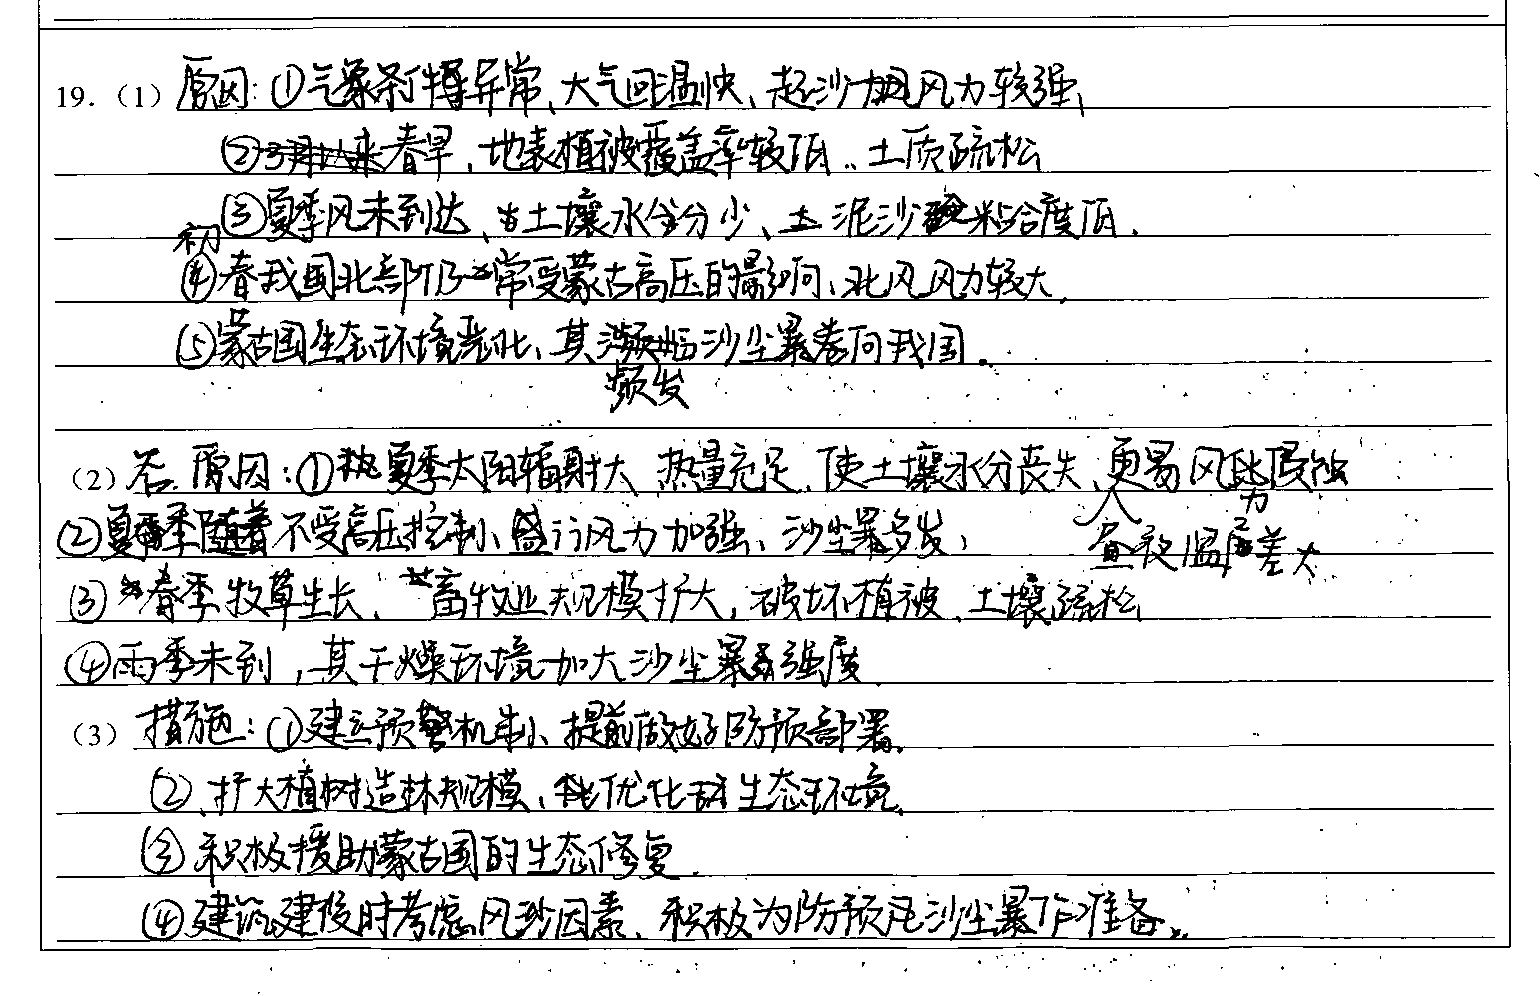 19.（1）原因：①气象条件异常、大气回温快、起沙风风力较强、
②春旱，地表植被覆盖率较低、土质疏松
③夏季风未到达、土壤水分少、泥沙粘合度低.
④初春我国北部仍常受蒙古高压的影响、北风风力较大.
⑤蒙古国生态环境恶化、其频发沙尘暴卷向我国.
（2）答.原因：①夏季太阳辐射大、热量充足、使土壤水分丧失、更易风力侵蚀
昼夜温度差大
②夏季随着不受高压控制、盛行风力加强、沙尘暴多发；
③春季牧草生长、畜牧业规模扩大，破坏植被、土壤疏松
④雨季未到，其干燥环境加大沙尘暴强度.
（3）措施：①建立预警机制、提前做好防预部署.
②、扩大植树造林规模、优化生态环境.
③积极援助蒙古国的生态修复.
④建筑建设时考虑风沙因素、积极为防预沙尘暴作准备.